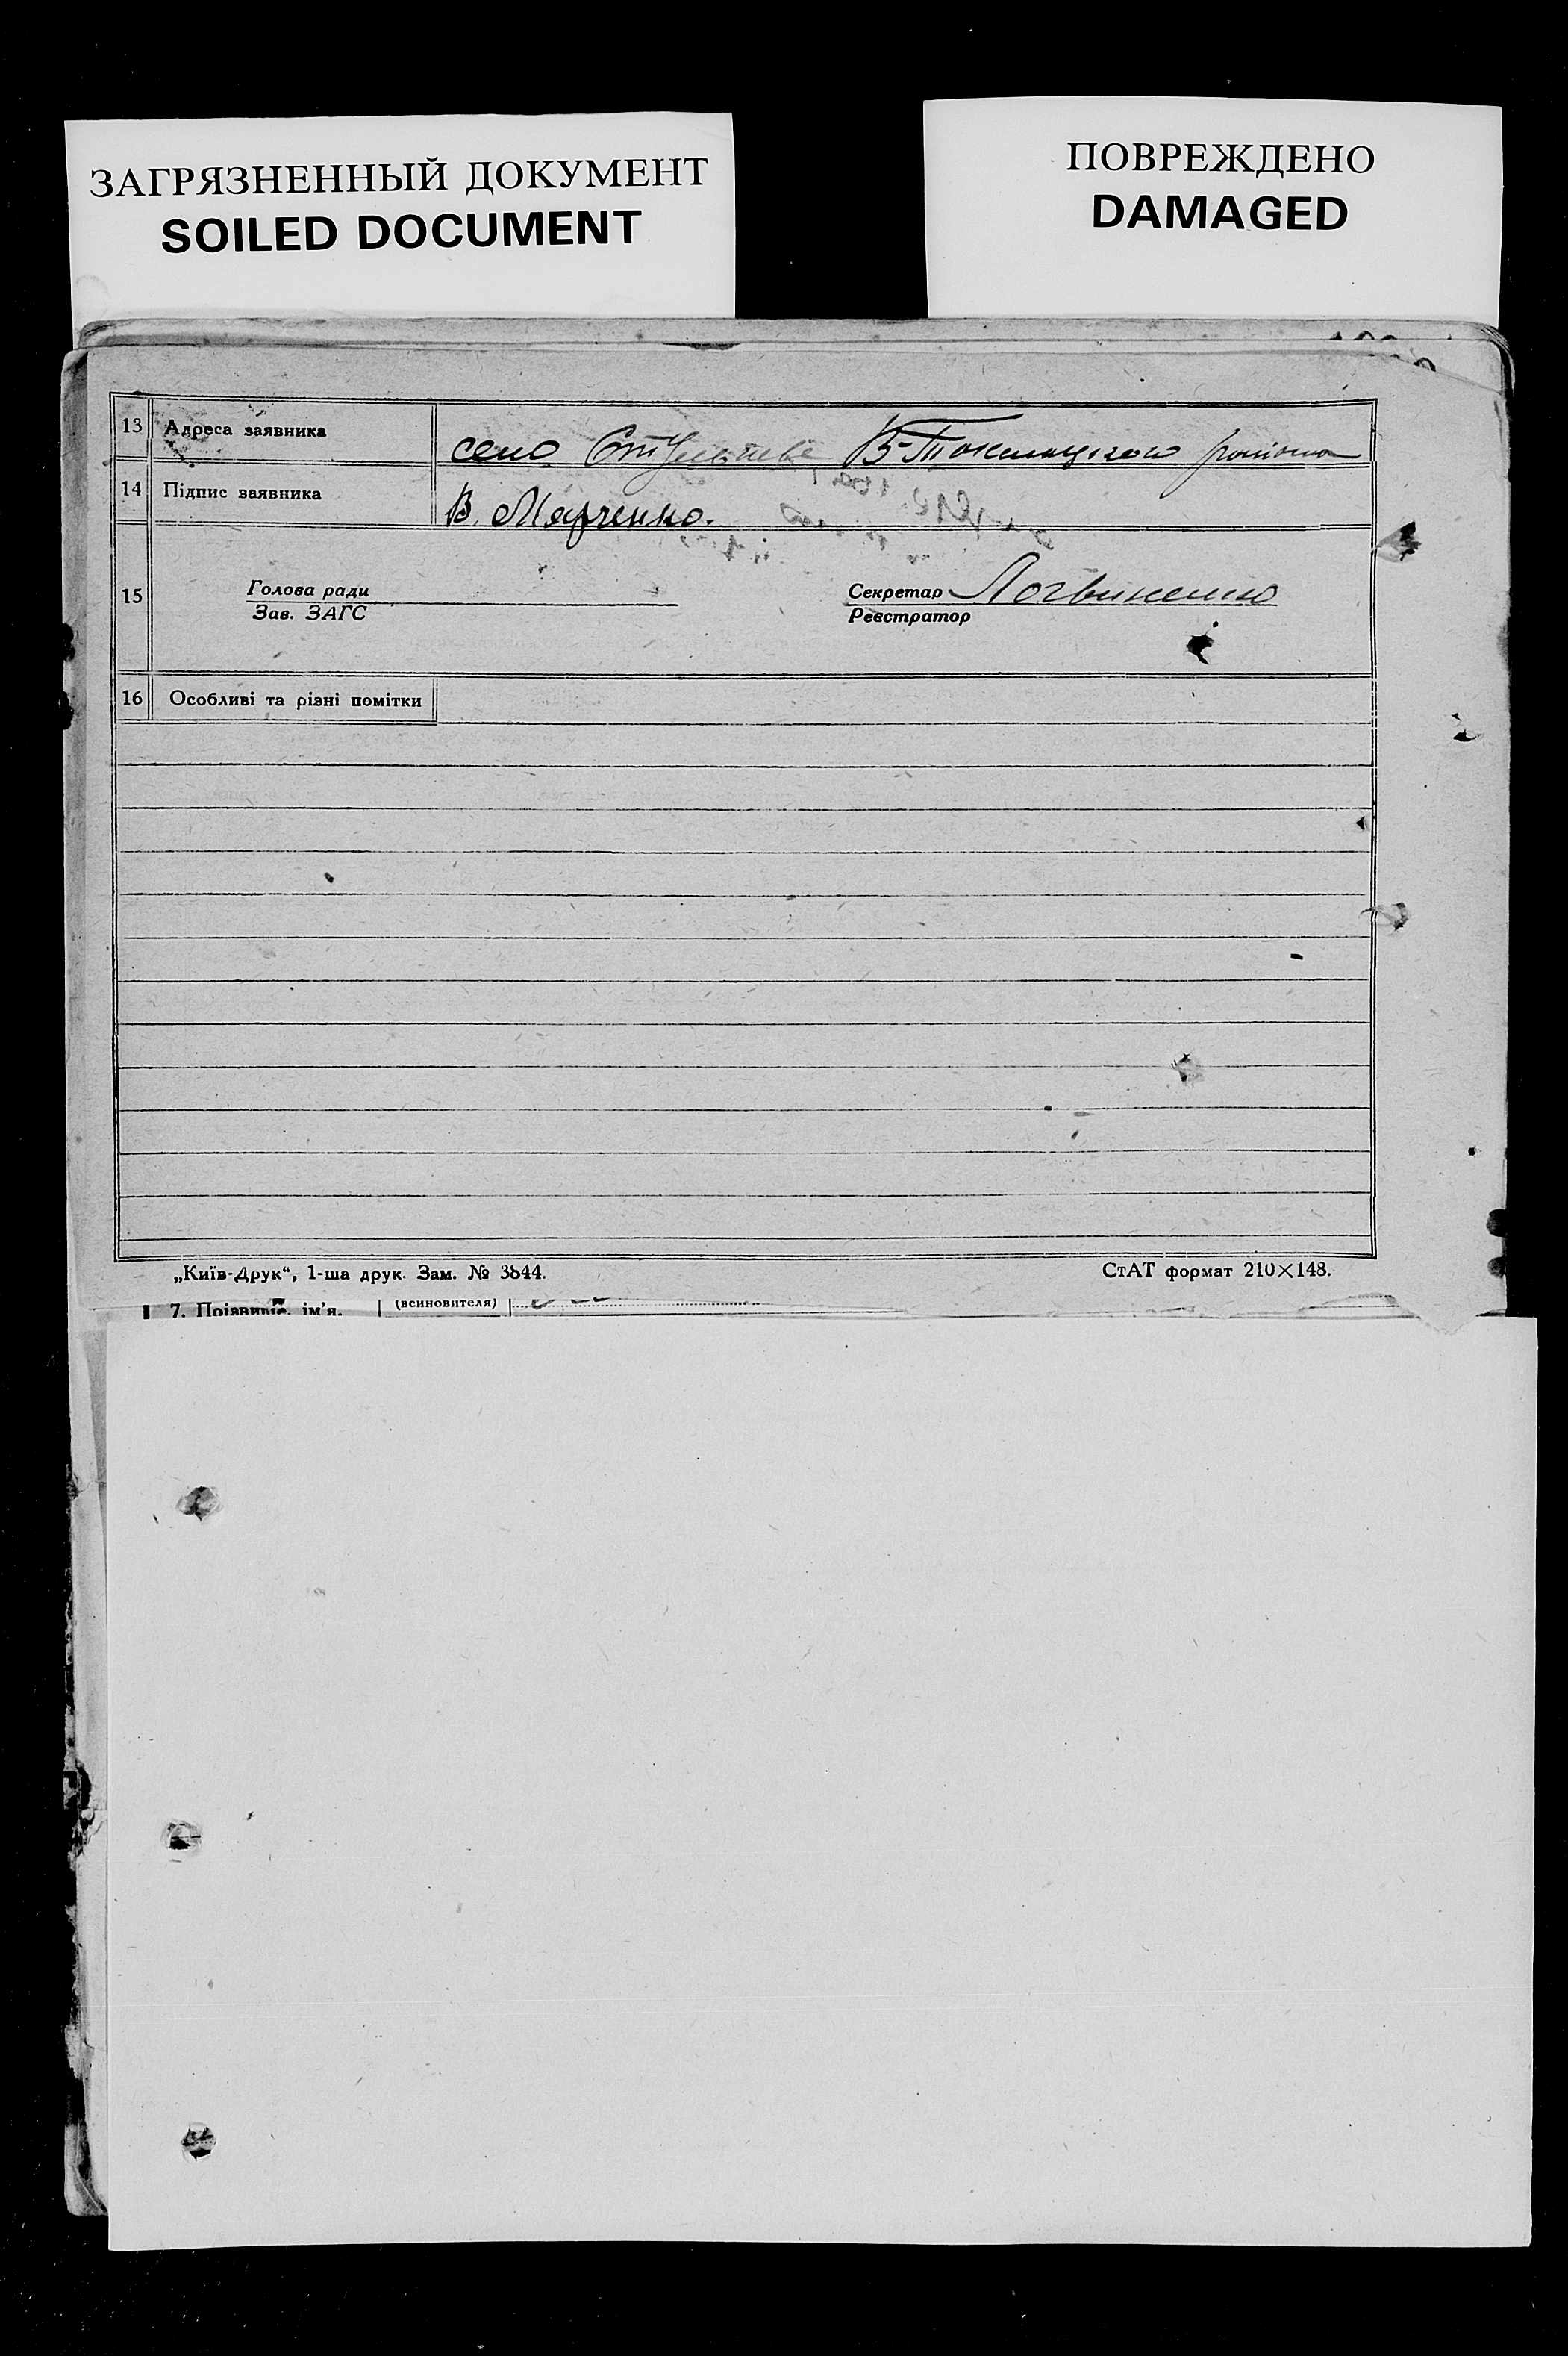 ЗАГРЯЗНЕННЫЙ ДОКУМЕНТ
SOILED DOCUMENT
ПОВРЕЖДЕНО
DAMAGED
13 Адреса заявника село В-Токмацького району
14 Підпис заявника В. Марченко.
15 Голова ради Секретар Логвиненко
Зав. ЗАГС Реєстратор
16 Особливі та різні помітки
„Київ-Друк“, 1-ша друк. Зам. № 3844. СтАТ формат 210×148.
7. Прізвище, ім'я, (всиновителя)